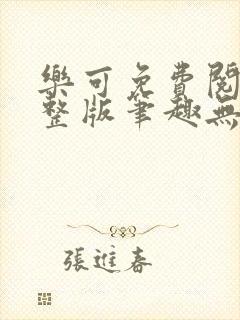 樂可免費閱
整版筆趣無
張進春